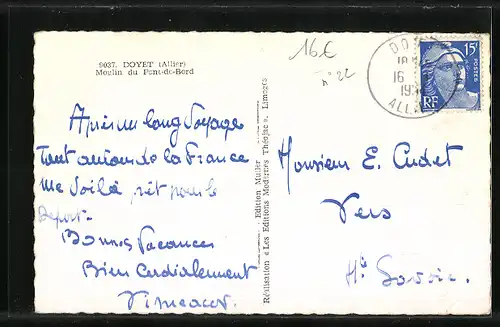 9037. DOYET (Allier)
Moulin du Pont-de-Bord
16€
n° 22
15F
POSTES
RF
16
ALL
Après un long Voyage
tout autour de la France
me voilà prêt pour le
Départ-
Bonnes Vacances
Bien Cordialement
Edition Muller
Réalisation « Les Editions Modernes Théojac », Limoges
Monsieur E. Cudet
Vers
Hte Savoie.